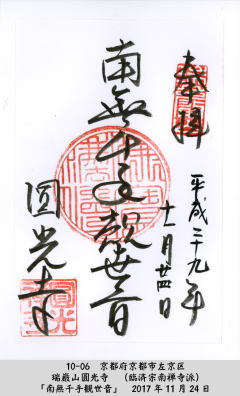 奉拝
平成二十九年
十一月廿四日
南無千手観世音
圓光寺
10-06 京都府京都市左京区
瑞巌山圓光寺 (臨済宗南禅寺派)
「南無千手観世音」 2017年11月24日